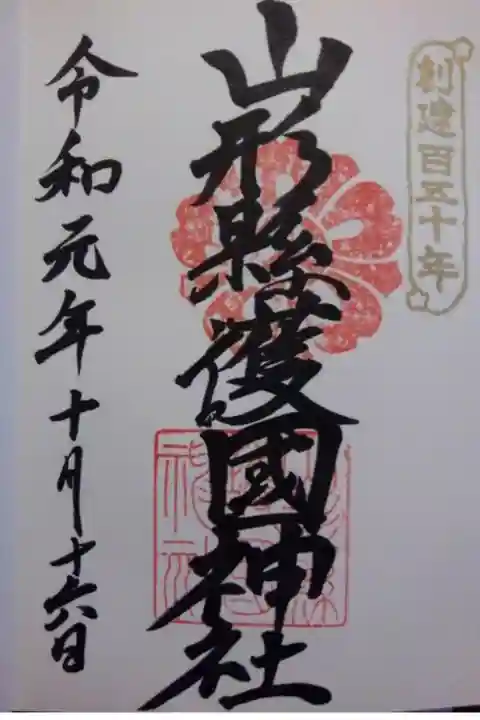 創建百五十年
山形縣護國神社
令和元年十月十六日